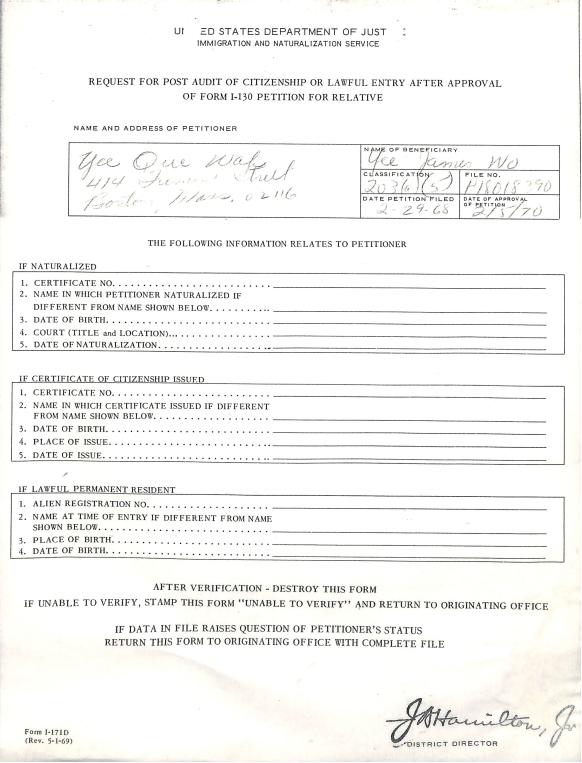 UNITED STATES DEPARTMENT OF JUST
IMMIGRATION AND NATURALIZATION SERVICE
REQUEST FOR POST AUDIT OF CITIZENSHIP OR LAWFUL ENTRY AFTER APPROVAL
OF FORM I-130 PETITION FOR RELATIVE
NAME AND ADDRESS OF PETITIONER
Yee Que Wah
414 Street
Boston, Mass. 02116
NAME OF BENEFICIARY
Yee James Wo
CLASSIFICATION
203(a)(5)
FILE NO.
A18018390
DATE PETITION FILED
2-29-68
DATE OF APPROVAL OF PETITION
2/5/70
THE FOLLOWING INFORMATION RELATES TO PETITIONER
IF NATURALIZED
1. CERTIFICATE NO.
2. NAME IN WHICH PETITIONER NATURALIZED IF
DIFFERENT FROM NAME SHOWN BELOW.
3. DATE OF BIRTH.
4. COURT (TITLE and LOCATION)...
5. DATE OF NATURALIZATION.
IF CERTIFICATE OF CITIZENSHIP ISSUED
1. CERTIFICATE NO.
2. NAME IN WHICH CERTIFICATE ISSUED IF DIFFERENT
FROM NAME SHOWN BELOW.
3. DATE OF BIRTH.
4. PLACE OF ISSUE.
5. DATE OF ISSUE.
IF LAWFUL PERMANENT RESIDENT
1. ALIEN REGISTRATION NO.
2. NAME AT TIME OF ENTRY IF DIFFERENT FROM NAME
SHOWN BELOW.
3. PLACE OF BIRTH.
4. DATE OF BIRTH.
AFTER VERIFICATION - DESTROY THIS FORM
IF UNABLE TO VERIFY, STAMP THIS FORM "UNABLE TO VERIFY" AND RETURN TO ORIGINATING OFFICE
IF DATA IN FILE RAISES QUESTION OF PETITIONER'S STATUS
RETURN THIS FORM TO ORIGINATING OFFICE WITH COMPLETE FILE
J A Hamilton, Jr
DISTRICT DIRECTOR
Form I-171D
(Rev. 5-1-69)